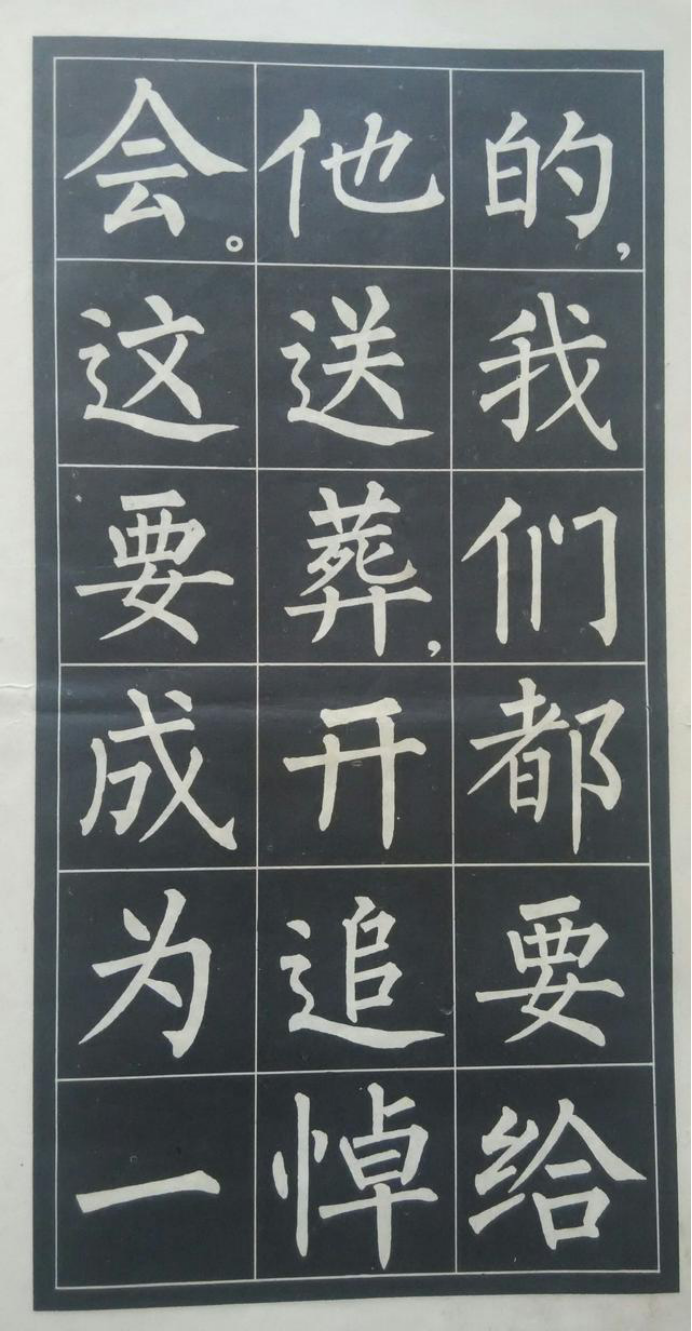 的,我们都要给
他送葬,开追悼
会。这要成为一